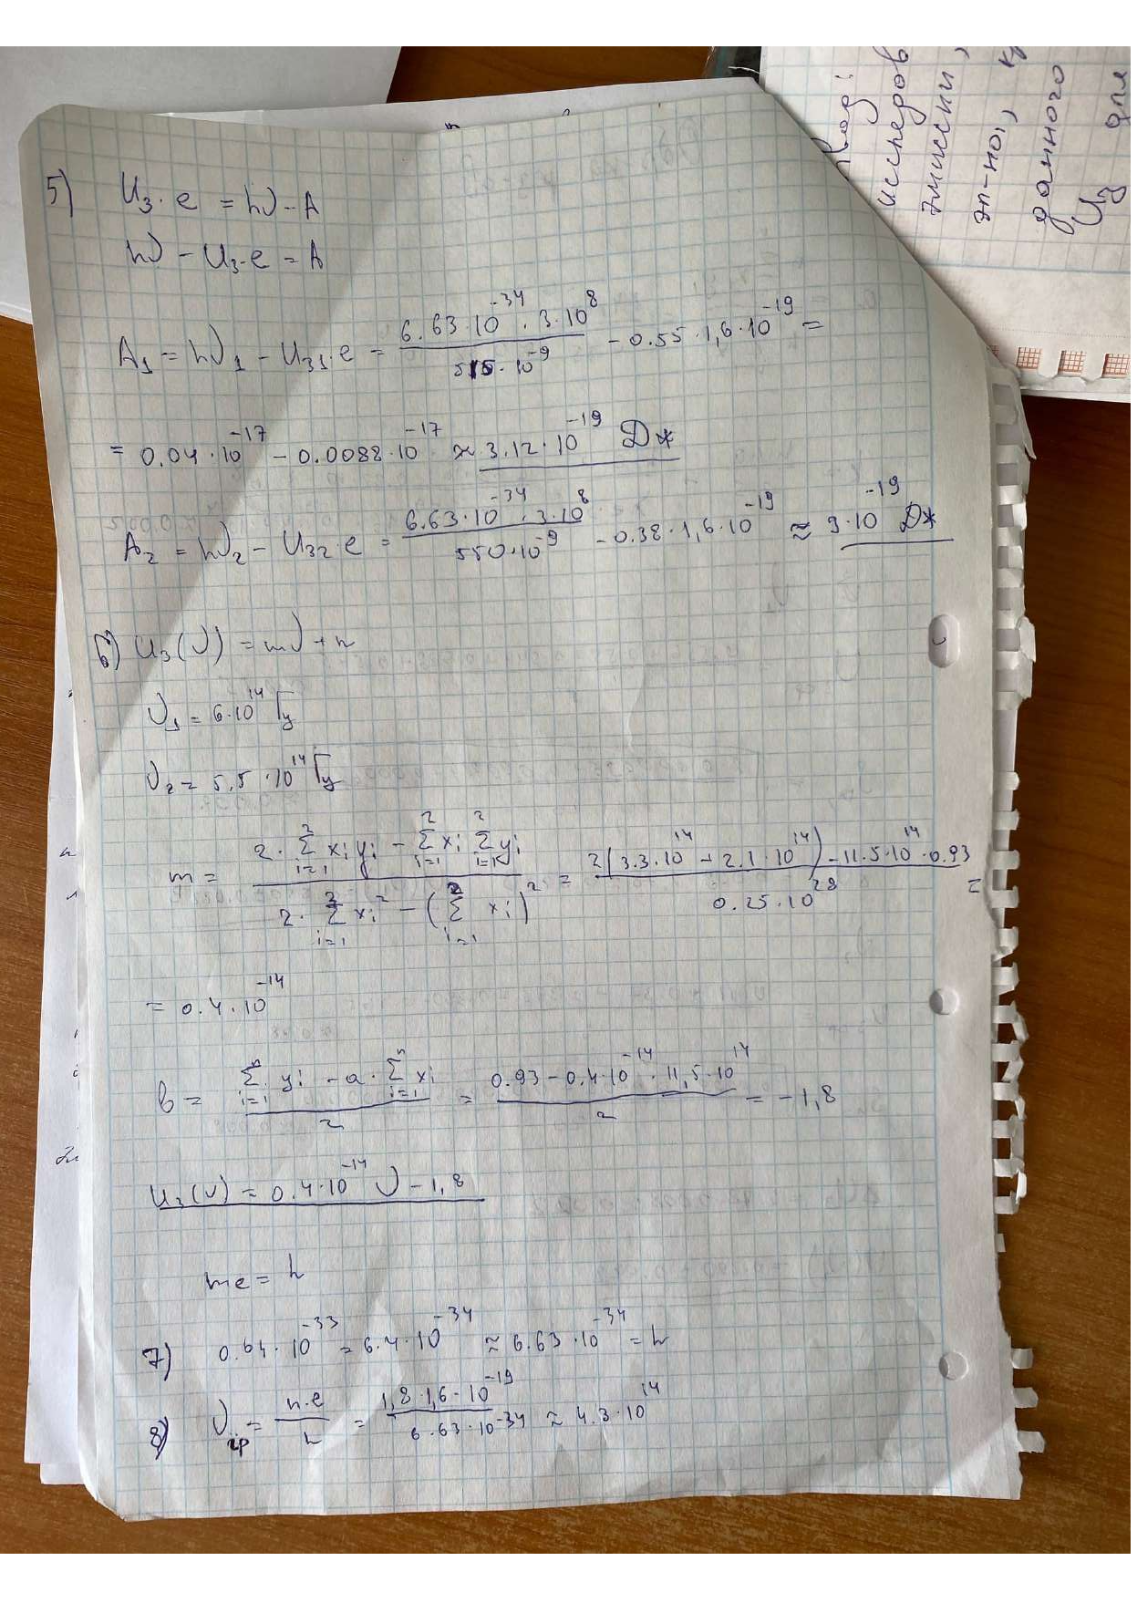 5) U₃·e = hν - A
hν - U₃·e = A
A₁ = hν₁ - U₃₁·e = (6.63·10⁻³⁴·3·10⁸)/(515·10⁻⁹) - 0.55·1,6·10⁻¹⁹ =
= 0.04·10⁻¹⁷ - 0.0088·10⁻¹⁷ ≈ 3.12·10⁻¹⁹ Дж
A₂ = hν₂ - U₃₂·e = (6.63·10⁻³⁴·3·10⁸)/(550·10⁻⁹) - 0.38·1,6·10⁻¹⁹ ≈ 3·10⁻¹⁹ Дж
6) U₃(ν) = mν + n
ν₁ = 6·10¹⁴ Гц
ν₂ = 5,5·10¹⁴ Гц
m = (2·∑ᵢ₌₁² xᵢyᵢ - ∑ᵢ₌₁² xᵢ ∑ᵢ₌₁² yᵢ)/(2·∑ᵢ₌₁² xᵢ² - (∑ᵢ₌₁² xᵢ)²) = (2(3.3·10¹⁴ + 2.1·10¹⁴) - 11.5·10¹⁴·0.93)/(0.25·10²⁸) =
= 0.4·10⁻¹⁴
b = (∑ᵢ₌₁ⁿ yᵢ - a·∑ᵢ₌₁ⁿ xᵢ)/2 = (0.93 - 0,4·10⁻¹⁴·11,5·10¹⁴)/2 = -1,8
U₃(ν) = 0.4·10⁻¹⁴ν - 1,8
me = h
7) 0.64·10⁻³³ = 6.4·10⁻³⁴ ≈ 6.63·10⁻³⁴ = h
8) νгр = (n·e)/h = (1,8·1,6·10⁻¹⁹)/(6.63·10⁻³⁴) ≈ 4.3·10¹⁴
исследов
эмиссии,
эл-но,
данного
U₃ для